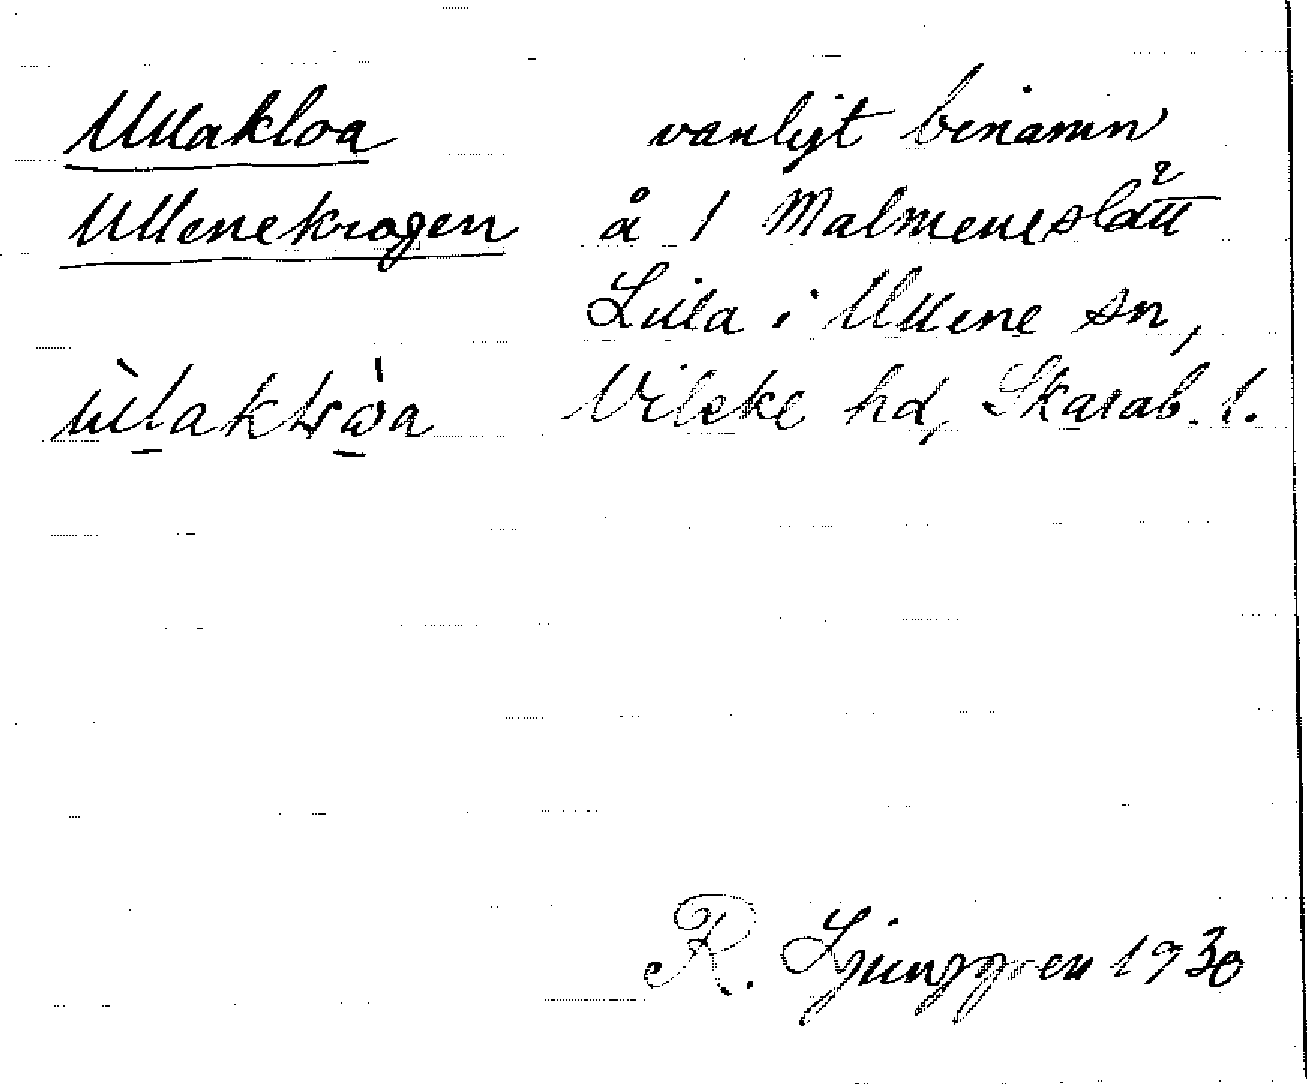 Ullakloa vanligt binamn
Ullenekrogen å 1 Malmeneslätt
Lilla i Ullene sn,
Vilske hd, Skarab. l.
R. Ljunggren 1930